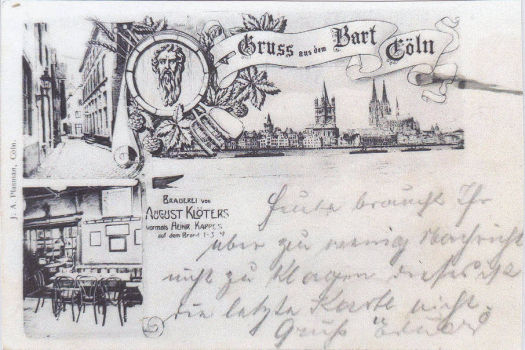 Gruss aus dem Bart Cöln
J. A. Plasman, Cöln.
BRAUEREI von
AUGUST KLÖTERS
vormals HEINR. KAPPES
auf dem Brand 1-3-4
Heute braucht Ihr
über zu wenig Nachricht
nicht zu klagen dieses ist
die letzte Karte nicht.
Gruß